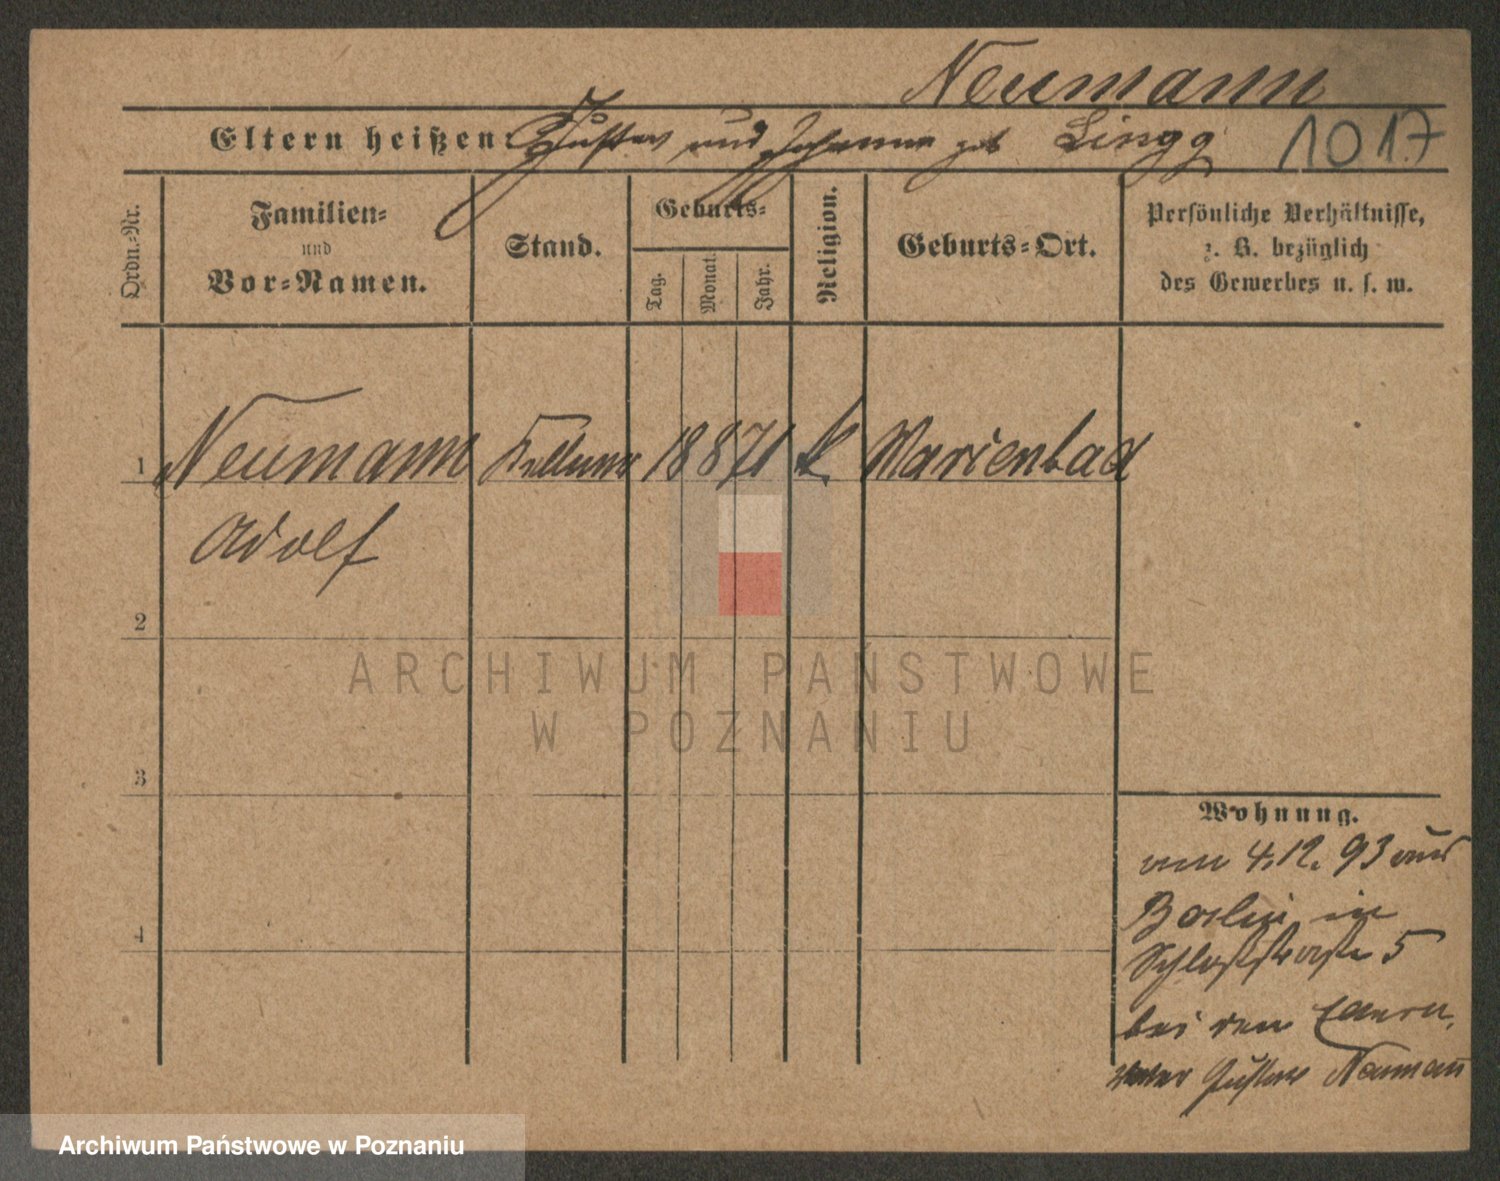 Neumann
Eltern heißen: Gustav und Johanne geb Lingg 1017
Ordn.-Nr.
Familien-
und
Vor-Namen.
Stand.
Geburts-
Tag.
Monat.
Jahr.
Religion.
Geburts-Ort.
Persönliche Verhältnisse,
z. B. bezüglich
des Gewerbes u. s. w.
1 Neumann Kellner 18 8 71 k Marienbad
Adolf
2
3
4
Wohnung.
vom 4.12. 93 aus
Berlin in
Schloßstraße 5
bei den Eltern,
Vater Gustav Neumann
ARCHIWUM PAŃSTWOWE
W POZNANIU
Archiwum Państwowe w Poznaniu